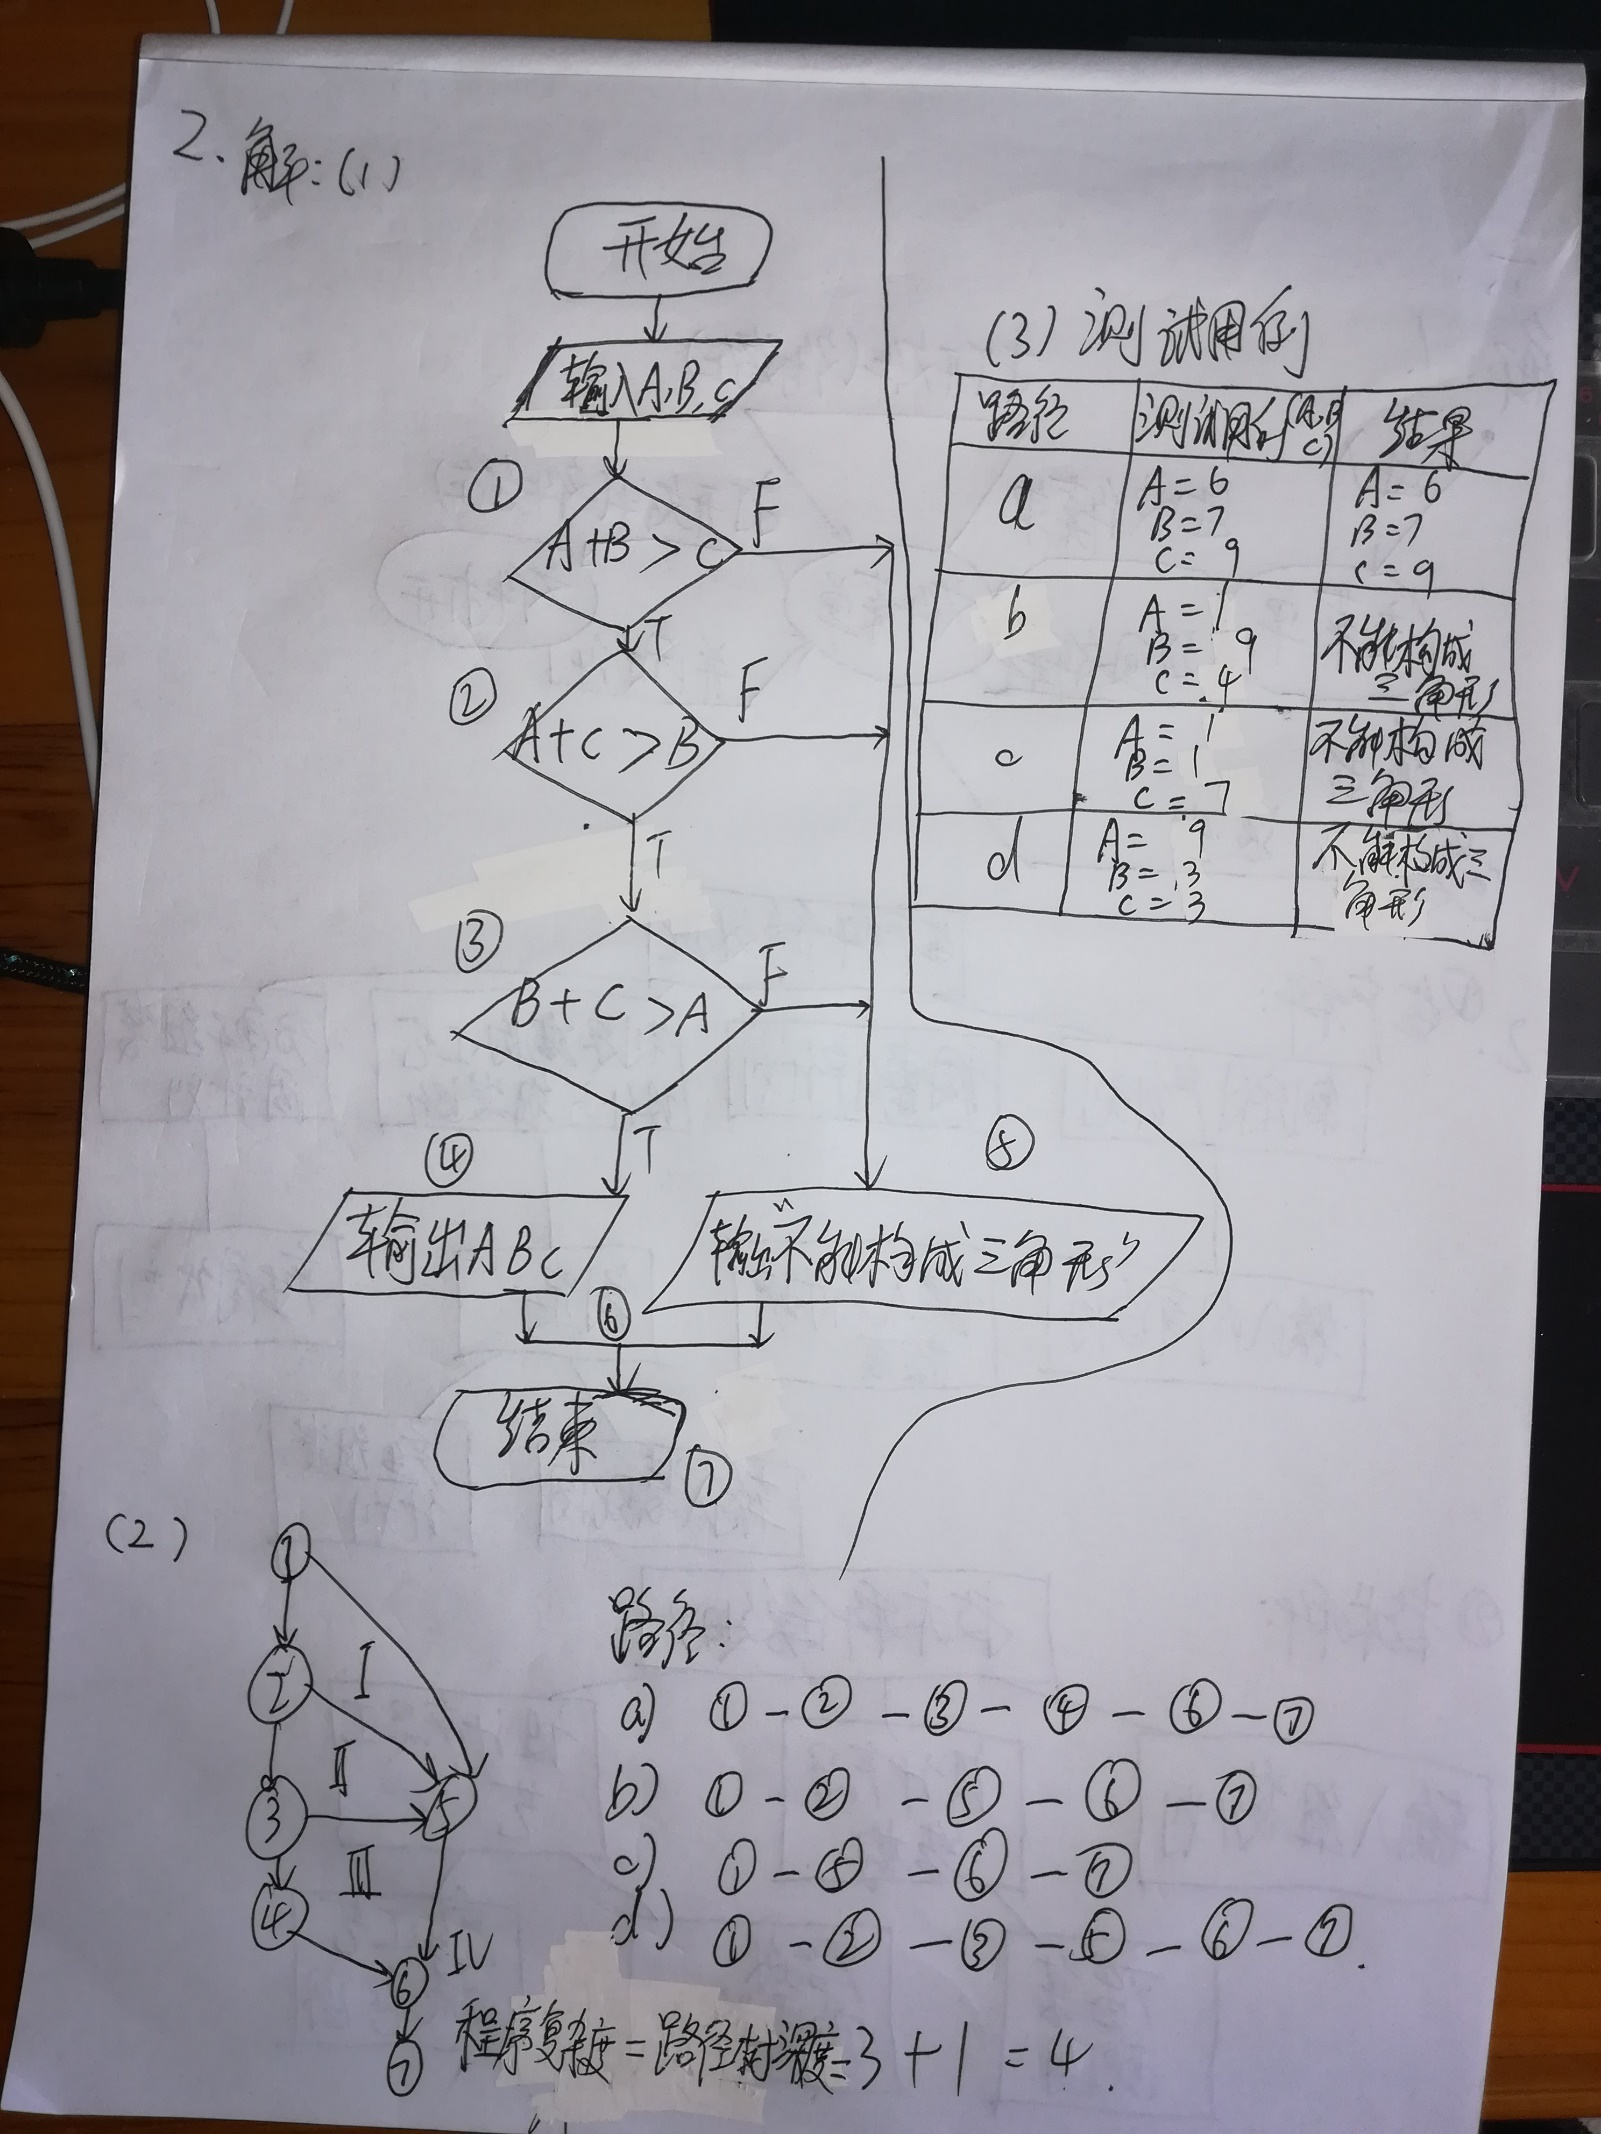 2.解:(1)
开始
输入A,B,C
①
A+B>C
F
T
②
A+C>B
F
T
③
B+C>A
F
T
④
输出ABC
⑤
输出"不能构成三角形"
⑥
结束
⑦
(3)测试用例
路径 测试用例(A,B,C) 结果
a
A=6
B=7
C=9
A=6
B=7
C=9
b
A=1
B=9
C=4
不能构成
三角形
c
A=1
B=1
C=7
不能构成
三角形
d
A=9
B=3
C=3
不能构成三
角形
(2)
①
②
I
③
II
⑤
④
III
⑥
IV
⑦
路径:
a) ①-②-③-④-⑥-⑦
b) ①-②-⑤-⑥-⑦
c) ①-⑤-⑥-⑦
d) ①-②-③-⑤-⑥-⑦.
程序复杂度=路径 深度=3+1=4.